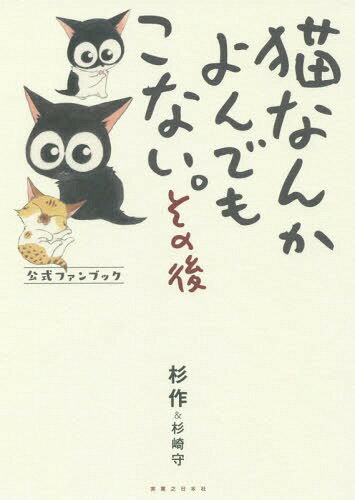 猫なんか
よんでも
こない。
その後
公式ファンブック
杉作
&
杉崎守
実業之日本社